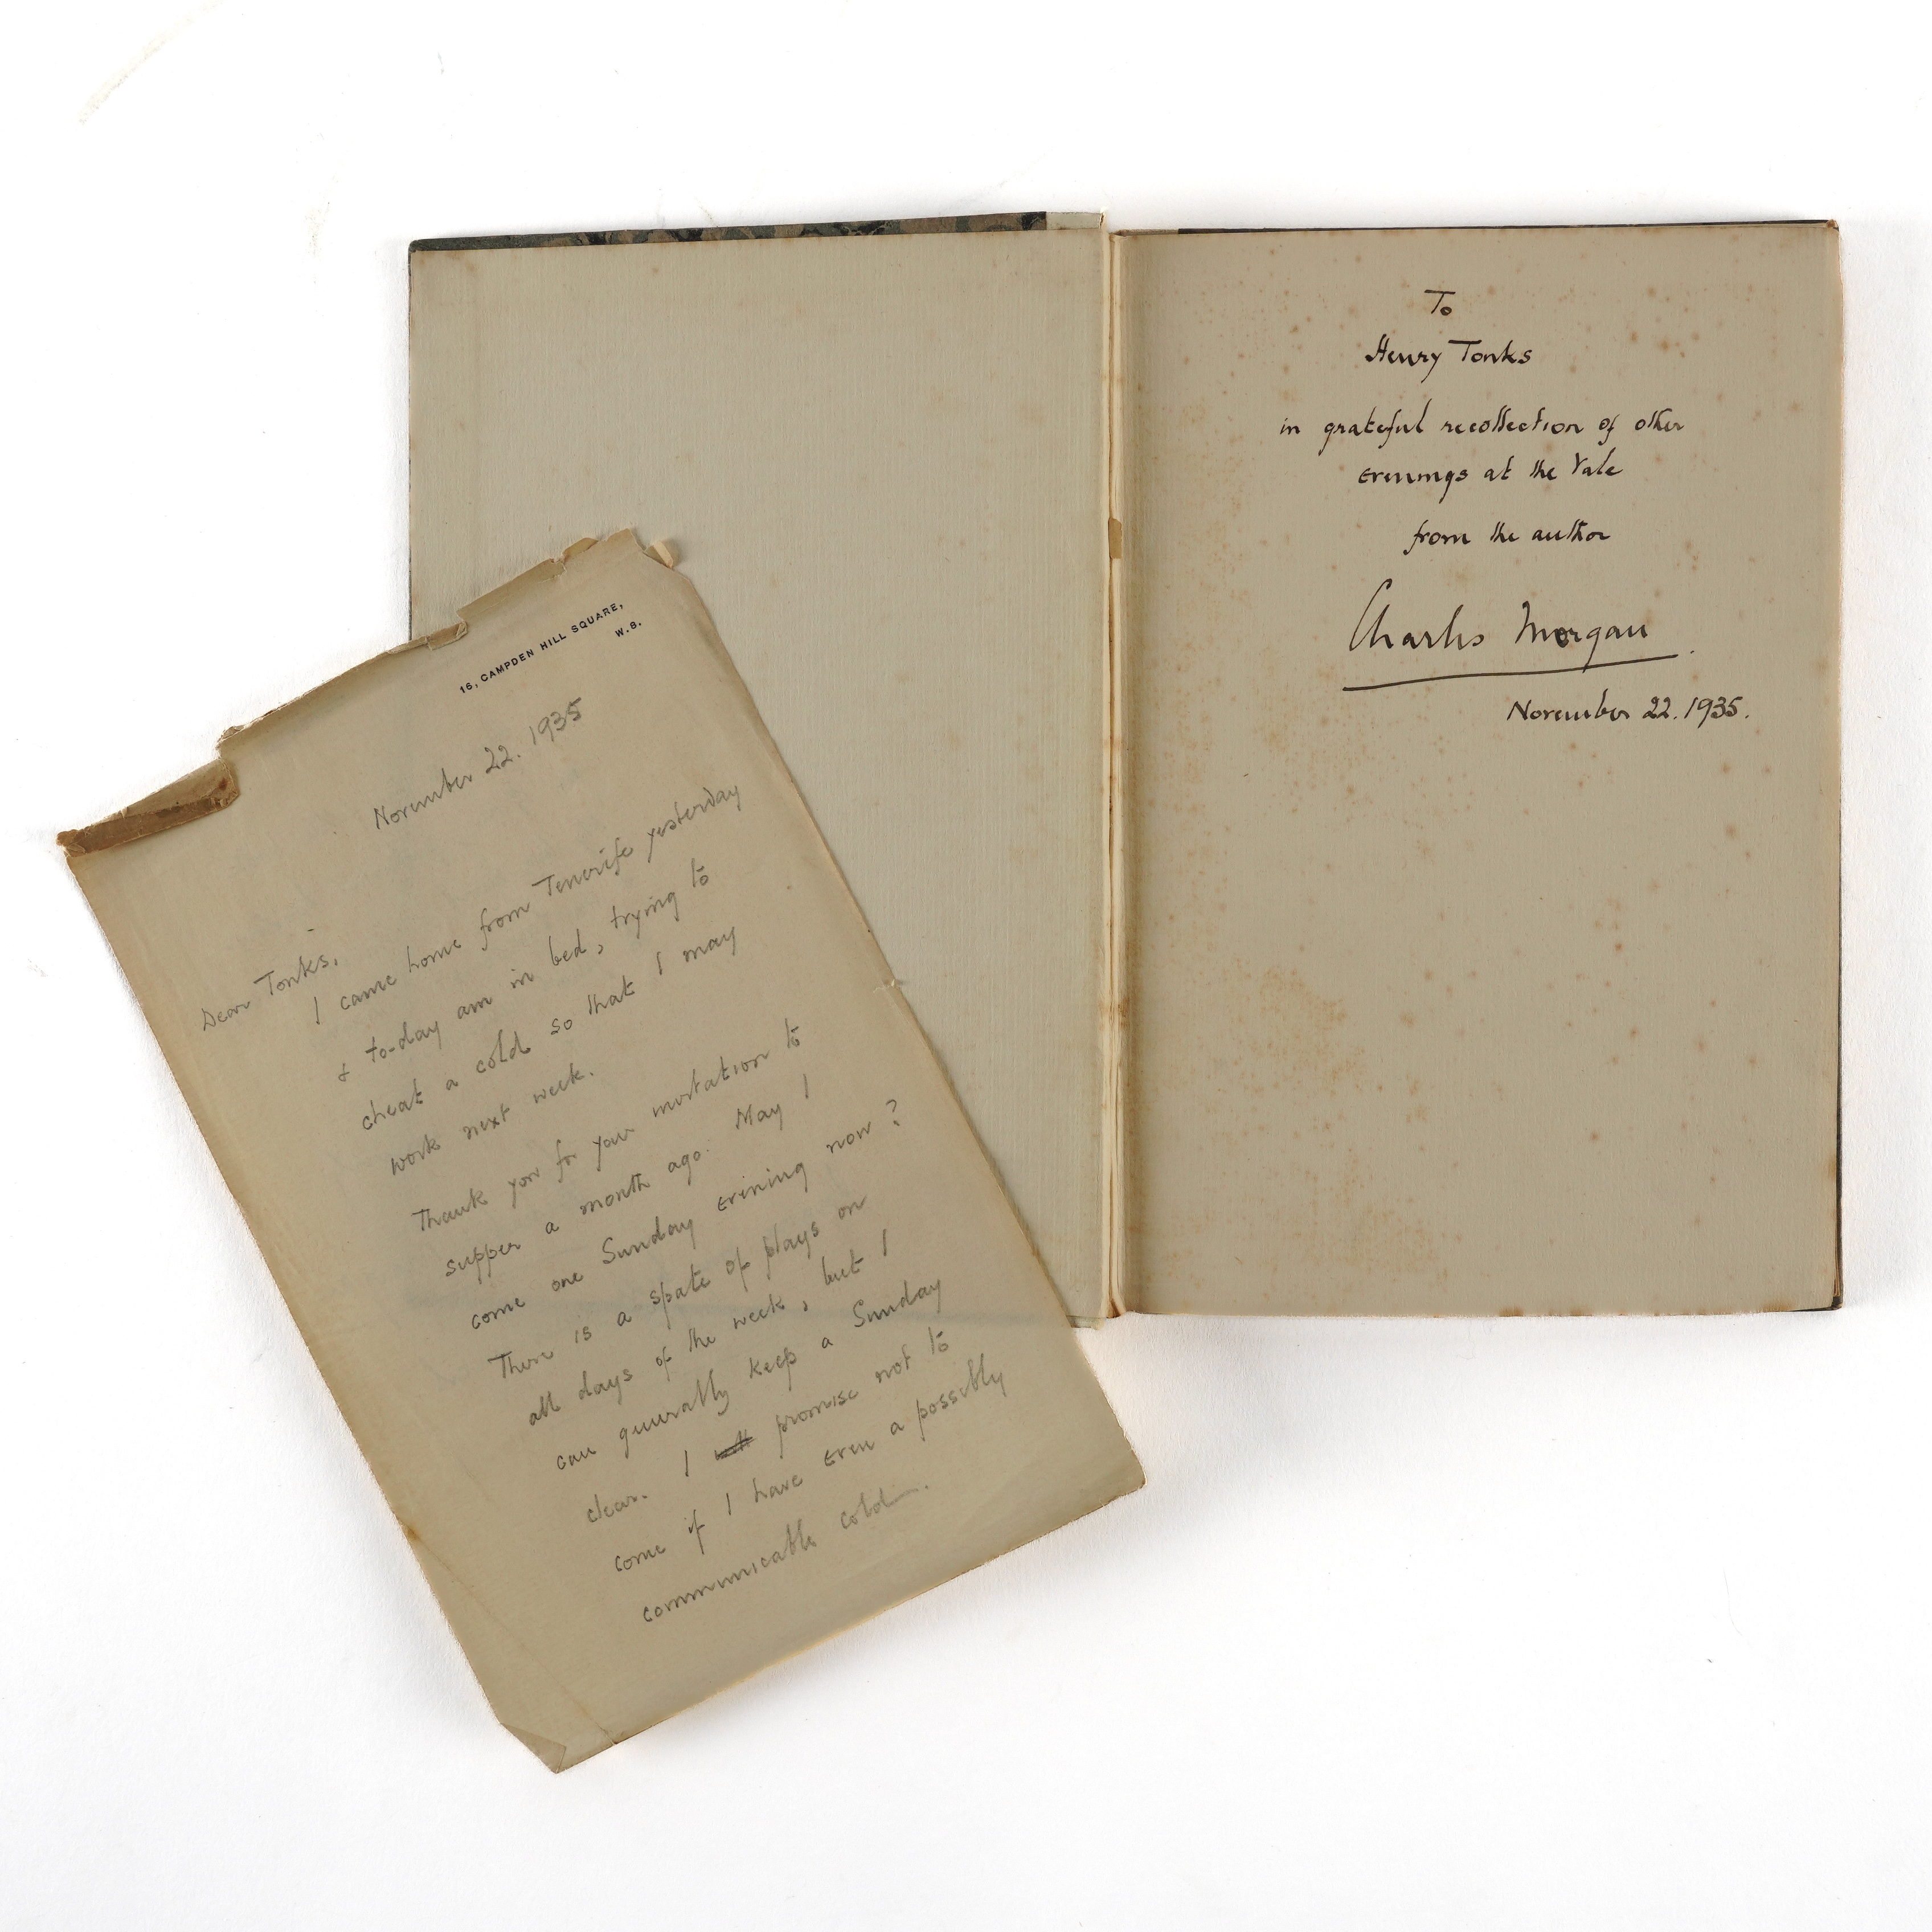 16, CAMPDEN HILL SQUARE,
W.8.
November 22. 1935
Dear Tonks,
I came home from Tenerife yesterday
& to-day am in bed, trying to
cheat a cold so that I may
work next week.
Thank you for your invitation to
supper a month ago. May I
come one Sunday evening now?
There is a spate of plays on
all days of the week, but I
can generally keep a Sunday
clear. I promise not to
come if I have even a possibly
communicable cold.
To
Henry Tonks
in grateful recollection of other
evenings at the Vale
from the author
Charles Morgan.
November 22. 1935.